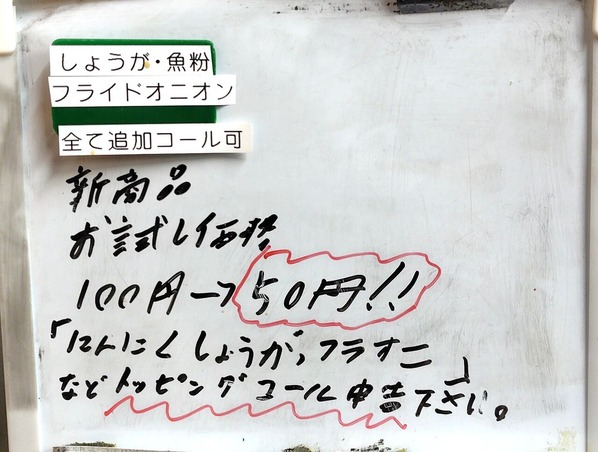 しょうが・魚粉
フライドオニオン
全て追加コール可
新商品
お試し価格
100円→50円!!
「にんにくしょうが,フラオニ」
などトッピングコール申告下さい。